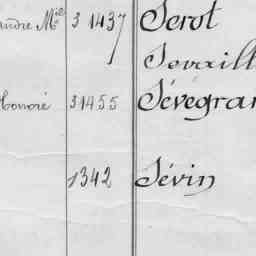 andre Mie 3 1437 Serot
Sovaill
Honoré 31455 Sévegran
1342 Sévin